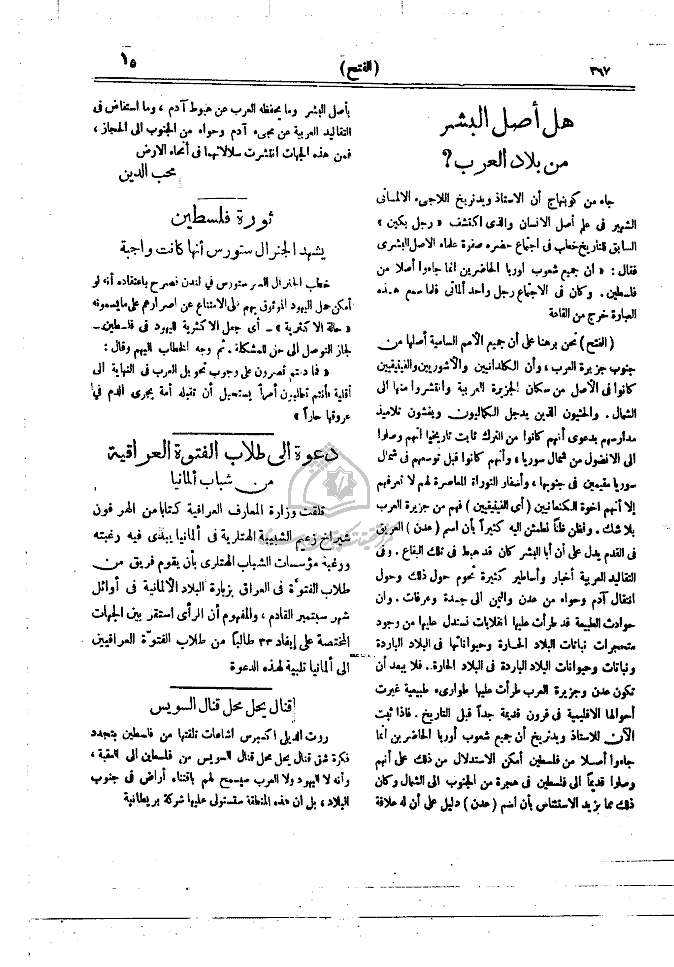 ٣٦٧
( الفتح )
١٥
هل أصل البشر
من بلاد العرب ؟
جاء من كوبنهاج أن الاستاذ ويدنريخ اللاجىء الالمانى
الشهير فى علم أصل الانسان والذى اكتشف « رجل بكين »
السابق للتاريخ خطب فى اجتماع حضره صفوة علماء الاصل البشرى
فقال : « ان جميع شعوب أوربا الحاضرين انما جاءوا أصلا من
فلسطين . وكان فى الاجتماع رجل واحد ألمانى فلما سمع هذه
العبارة خرج من القاعة
( الفتح ) نحن برهنا على أن جميع الأمم السامية أصلها من
جنوب جزيرة العرب ، وأن الكلدانيين والآشوريين والفينيقيين
كانوا فى الأصل من سكان الجزيرة العربية وانتشروا منها الى
الشمال . والحثيون الذين يدجل الكماليون ويغشون تلاميذ
مدارسهم بدعوى أنهم كانوا من الترك ثابت تاريخيا أنهم وصلوا
الى الاناضول من شمال سوريا ، وأنهم كانوا قبل توسعهم فى شمال
سوريا مقيمين فى جنوبها ، وأسفار التوراة المعاصرة لهم لا تعرفهم
إلا أنهم اخوة الكنعانيين ( أى الفينيقيين ) فهم من جزيرة العرب
بلا شك . ونظن ظنا نطمئن اليه كثيراً بأن اسم ( عدن ) العريق
فى القدم يدل على أن أبا البشر كان قد هبط فى تلك البقاع . وفى
التقاليد العربية أخبار وأساطير كثيرة تحوم حول ذلك وحول
انتقال آدم وحواء من عدن واليمن الى جدة وعرفات . وان
حوادث الطبيعة قد طرأت عليها انقلابات نستدل عليها من وجود
متحجرات نباتات البلاد الحارة وحيواناتها فى البلاد الباردة
ونباتات وحيوانات البلاد الباردة فى البلاد الحارة . فلا يبعد أن
تكون عدن وجزيرة العرب طرأت عليها طوارىء طبيعية غيرت
أحوالها الاقليمية فى قرون قديمة جداً قبل التاريخ . فاذا ثبت
الآن للاستاذ ويدنريخ أن جميع شعوب أوربا الحاضرين انما
جاءوا أصلا من فلسطين أمكن الاستدلال من ذلك على أنهم
وصلوا قديماً الى فلسطين فى هجرة من الجنوب الى الشمال وكان
ذلك مما يزيد الاستئناس بأن اسم ( عدن ) دليل على أن له علاقة
بأصل البشر وما يحفظه العرب عن هبوط آدم ، وما استفاض فى
التقاليد العربية عن مجىء آدم وحواء من الجنوب الى الحجاز ،
فمن هذه الجهات انتشرت سلالاتهما فى أنحاء الارض
محب الدين
ثورة فلسطين
يشهد الجنرال ستورس أنها كانت واجبة
خطب الجنرال السير ستورس فى لندن فصرح باعتقاده أنه لو
أمكن حمل اليهود الموثوق بهم على الامتناع عن اصرارهم على مايسمونه
« حالة الاكثرية » ـ أى جعل الاكثرية لليهود فى فلسطين ـ
لجاز التوصل الى حل للمشكلة . ثم وجه الخطاب اليهم وقال :
« فما دمتم تصرون على وجوب تحويل العرب فى النهاية الى
أقلية فأنتم تطلبون أمراً يستحيل أن تقبله أمة يجرى الدم فى
عروقها حاراً »
دعوة الى طلاب الفتوة العراقية
من شباب ألمانيا
تلقت وزارة المعارف العراقية كتابا من الهر فون
شيراخ زعيم الشبيبة الهتلرية فى ألمانيا يبدى فيه رغبته
ورغبة مؤسسات الشباب الهتلرى بأن يقوم فريق من
طلاب الفتوة فى العراق بزيارة البلاد الألمانية فى أوائل
شهر سبتمبر القادم ، والمفهوم أن الرأى استقر بين الجهات
المختصة على إيفاد ٣٣ طالبا من طلاب الفتوة العراقيين
الى ألمانيا تلبية لهذه الدعوة
إقنال يحل محل قنال السويس
روت الديلى اكسبرس اشاعات تلقتها من فلسطين بتجدد
فكرة شق قنال يحل محل قنال السويس من فلسطين الى العقبة ،
وأنه لا اليهود ولا العرب سيسمح لهم باقتناء أراض فى جنوب
البلاد ، بل ان هذه المنطقة ستستولى عليها شركة بريطانية